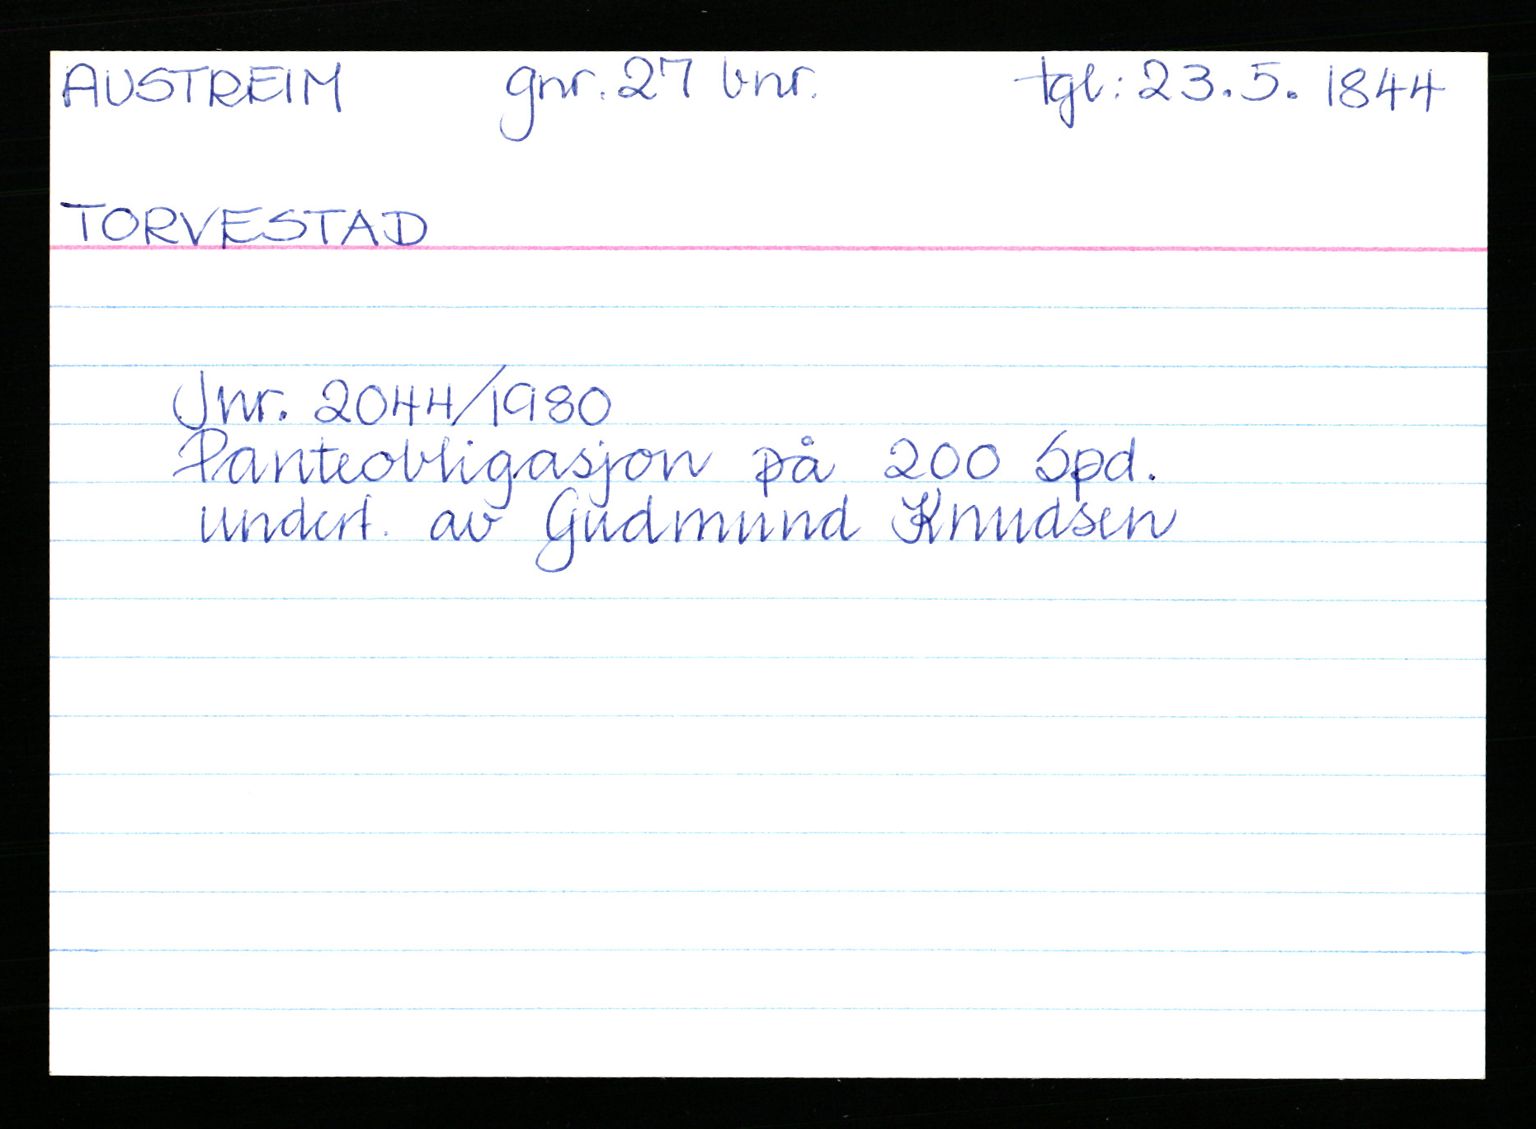 AUSTREIM gnr. 27 bnr. tgl: 23.5. 1844
TORVESTAD
Jnr. 2044/1980
Panteobligasjon på 200 Spd.
undert. av Gudmund Knudsen